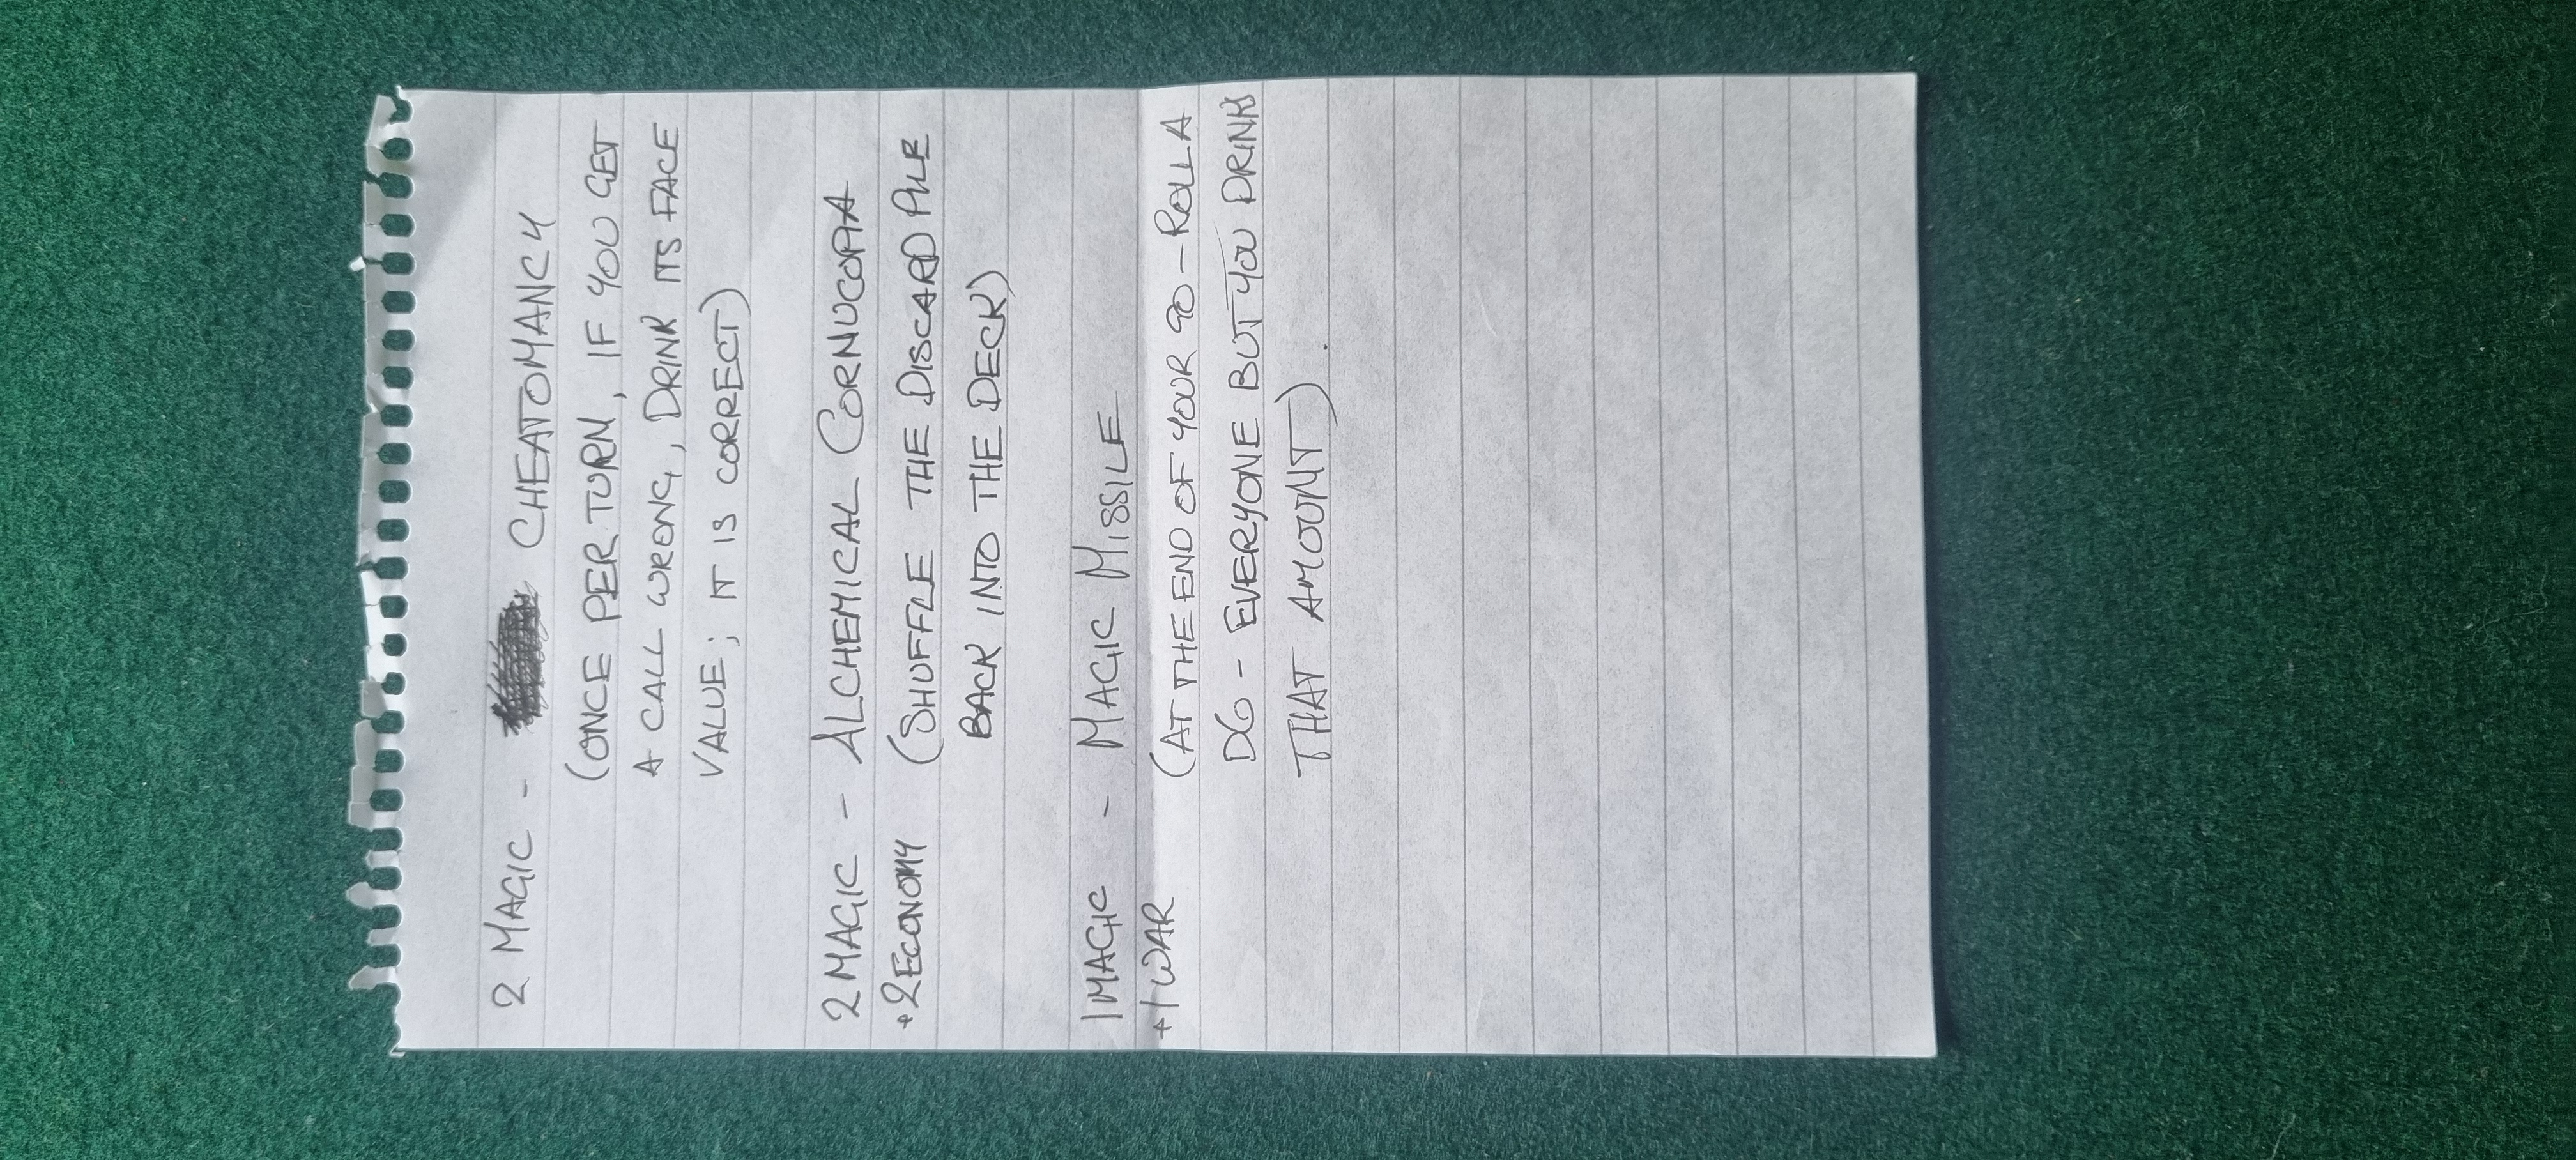 2 MAGIC - CHEATOMANCY
(ONCE PER TURN, IF YOU GET
A CALL WRONG, DRINK ITS FACE
VALUE; IT IS CORRECT)
2 MAGIC - ALCHEMICAL CORNUCOPIA
+2 ECONOMY (SHUFFLE THE DISCARD PILE
BACK INTO THE DECK)
1 MAGIC - MAGIC MISSILE
+1 WAR (AT THE END OF YOUR GO - ROLL A
D6 - EVERYONE BUT YOU DRINKS
THAT AMOUNT)